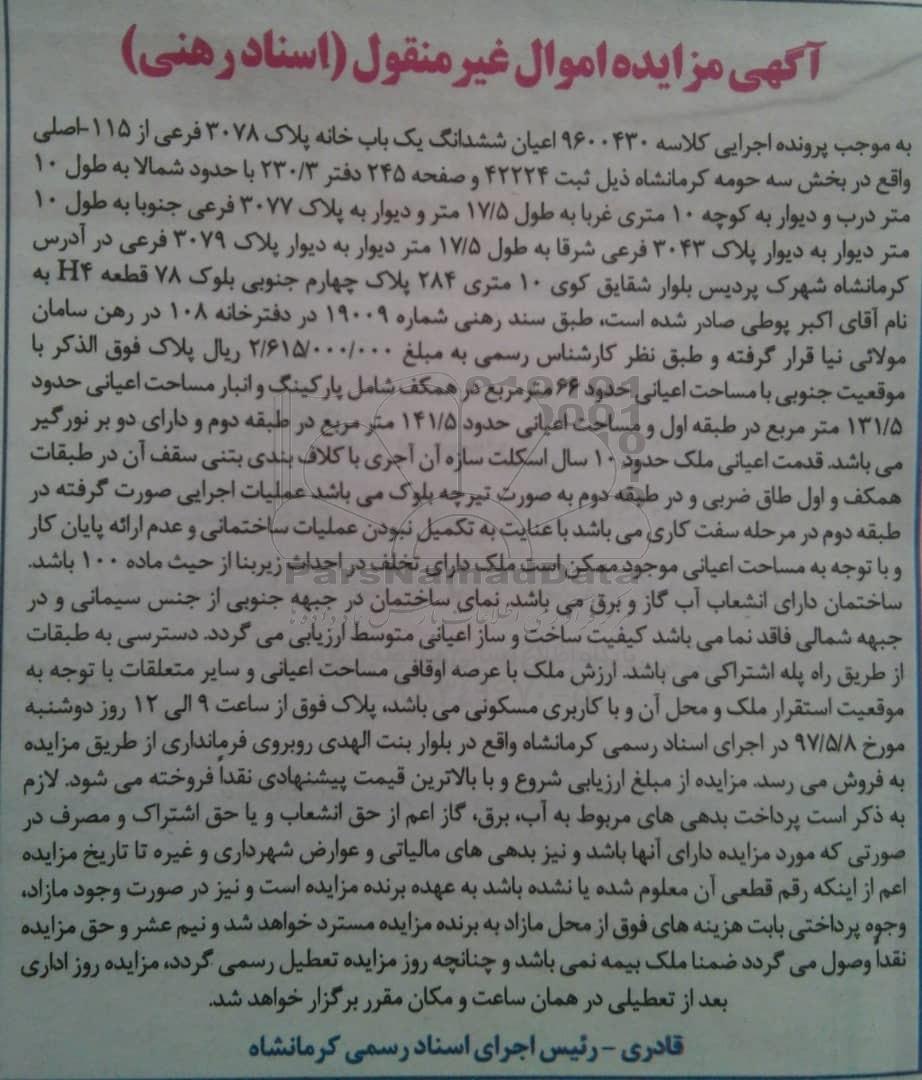 آگهی مزایده اموال غیر منقول (اسناد رهنی)
به موجب پرونده اجرایی کلاسه ۹۶۰۰۴۳۰ اعیان ششدانگ یک باب خانه پلاک ۳۰۷۸ فرعی از ۱۱۵-اصلی
واقع در بخش سه حومه کرمانشاه ذیل ثبت ۴۲۲۲۴ و صفحه ۲۴۵ دفتر ۲۳۰/۳ با حدود شمالا به طول ۱۰
متر درب و دیوار به کوچه ۱۰ متری غربا به طول ۱۷/۵ متر و دیوار به پلاک ۳۰۷۷ فرعی جنوبا به طول ۱۰
متر دیوار به دیوار پلاک ۳۰۴۳ فرعی شرقا به طول ۱۷/۵ متر دیوار به دیوار پلاک ۳۰۷۹ فرعی در آدرس
کرمانشاه شهرک پردیس بلوار شقایق کوی ۱۰ متری ۲۸۴ پلاک چهارم جنوبی بلوک ۷۸ قطعه H۴ به
نام آقای اکبر پوطی صادر شده است، طبق سند رهنی شماره ۱۹۰۰۹ در دفترخانه ۱۰۸ در رهن سامان
مولائی نیا قرار گرفته و طبق نظر کارشناس رسمی به مبلغ ۲/۶۱۵/۰۰۰/۰۰۰ ریال پلاک فوق الذکر با
موقعیت جنوبی با مساحت اعیانی حدود ۶۶ مترمربع در همکف شامل پارکینگ و انبار مساحت اعیانی حدود
۱۳۱/۵ متر مربع در طبقه اول و مساحت اعیانی حدود ۱۴۱/۵ متر مربع در طبقه دوم و دارای دو بر نورگیر
می باشد. قدمت اعیانی ملک حدود ۱۰ سال اسکلت سازه آن آجری با کلاف بندی بتنی سقف آن در طبقات
همکف و اول طاق ضربی و در طبقه دوم به صورت تیرچه بلوک می باشد عملیات اجرایی صورت گرفته در
طبقه دوم در مرحله سفت کاری می باشد با عنایت به تکمیل نبودن عملیات ساختمانی و عدم ارائه پایان کار
و با توجه به مساحت اعیانی موجود ممکن است ملک دارای تخلف در احداث زیربنا از حیث ماده ۱۰۰ باشد.
ParsNamadData
ساختمان دارای انشعاب آب گاز و برق می باشد. نمای ساختمان در جبهه جنوبی از جنس سیمانی و در
جبهه شمالی فاقد نما می باشد کیفیت ساخت و ساز اعیانی متوسط ارزیابی می گردد. دسترسی به طبقات
از طریق راه پله اشتراکی می باشد. ارزش ملک با عرصه اوقافی مساحت اعیانی و سایر متعلقات با توجه به
موقعیت استقرار ملک و محل آن و با کاربری مسکونی می باشد، پلاک فوق از ساعت ۹ الی ۱۲ روز دوشنبه
مورخ ۹۷/۵/۸ در اجرای اسناد رسمی کرمانشاه واقع در بلوار بنت الهدی روبروی فرمانداری از طریق مزایده
به فروش می رسد. مزایده از مبلغ ارزیابی شروع و با بالاترین قیمت پیشنهادی نقداً فروخته می شود. لازم
به ذکر است پرداخت بدهی های مربوط به آب، برق، گاز اعم از حق انشعاب و یا حق اشتراک و مصرف در
صورتی که مورد مزایده دارای آنها باشد و نیز بدهی های مالیاتی و عوارض شهرداری و غیره تا تاریخ مزایده
اعم از اینکه رقم قطعی آن معلوم شده یا نشده باشد به عهده برنده مزایده است و نیز در صورت وجود مازاد،
وجوه پرداختی بابت هزینه های فوق از محل مازاد به برنده مزایده مسترد خواهد شد و نیم عشر و حق مزایده
نقداً وصول می گردد ضمنا ملک بیمه نمی باشد و چنانچه روز مزایده تعطیل رسمی گردد، مزایده روز اداری
بعد از تعطیلی در همان ساعت و مکان مقرر برگزار خواهد شد.
قادری - رئیس اجرای اسناد رسمی کرمانشاه